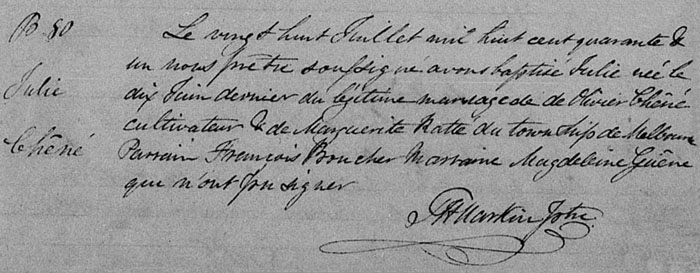 B 80
Julie
Chêné
Le vingt huit Juillet mil huit cent quarante &
un nous prêtre soussigné avons baptisé Julie née le
dix Juin dernier du légitime mariage de de Olivier Chêné
cultivateur & de Marguerite Ratte du town ship de Melbourne
Parrain François Boucher Marraine Magdeleine Guêne
que n'ont pu signer
Harkin Ptre